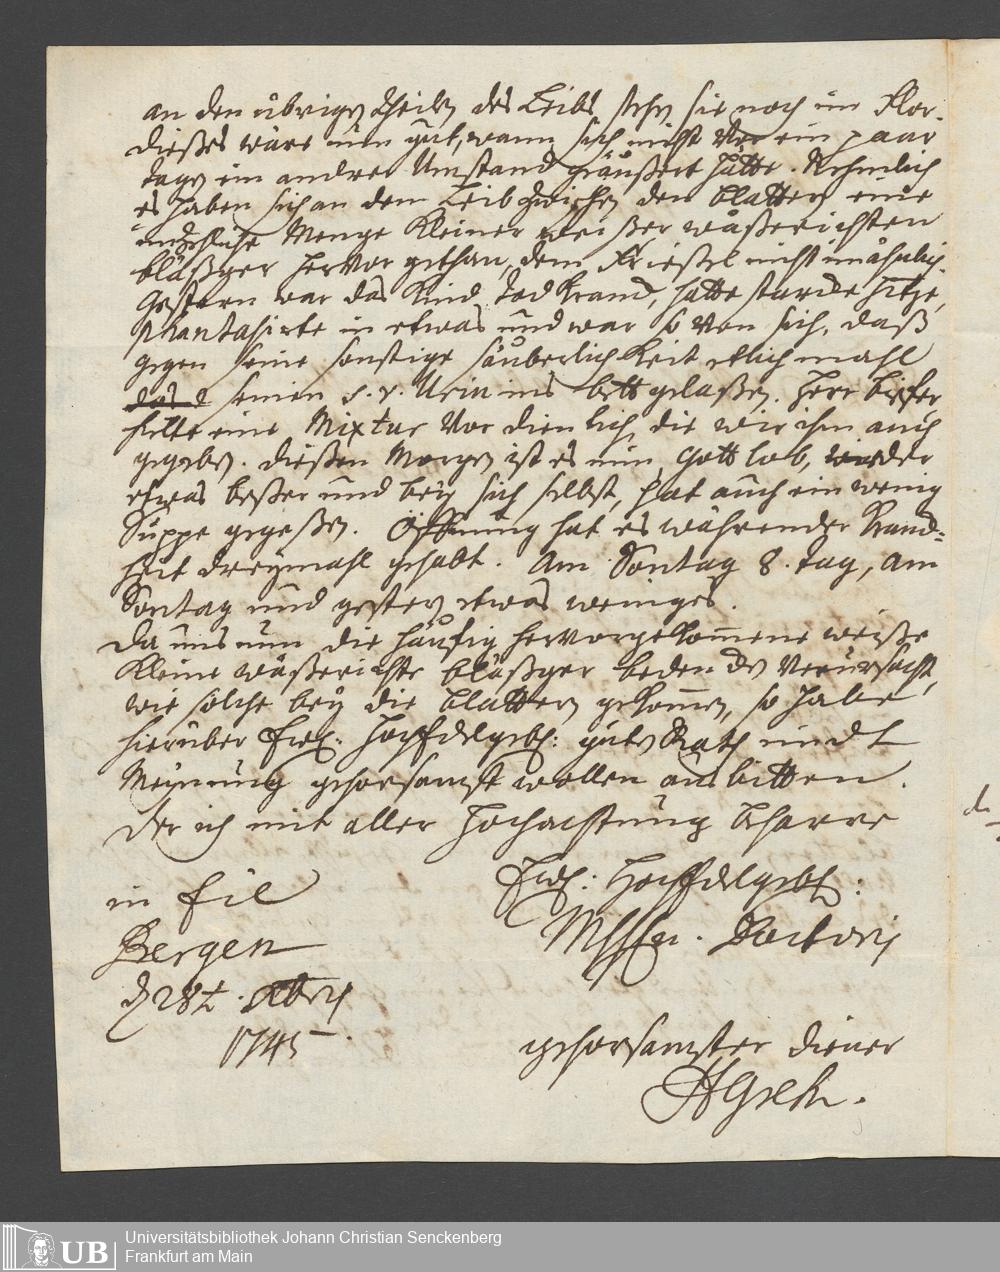 an den übrigen Theilen des Leibs stehn sie noch im Flor.
dießes wäre nun gut, wann sich nicht vor ein paar
tagen ein andrer Umstand geäußert hätte. Nehmlich
es haben sich an dem Leib zwischen den blattern eine
unzehliche Menge kleiner weißer wäßerichten
bläßger hervor gethan, dem Frießel nicht unähnlich.
Gestern war das Kind todkranck, hatte starcke Hitze,
phantasirte in etwas und war so von sich, daß
gegen seine sonstige säuberlichkeit etlich mahl
seinen s. v. Urin ins bett gelaßen. Herr
hielte eine Mixtur vor dienlich, die wir ihm auch
gegeben. dießen Morgen ist es nun, Gott lob, wieder
etwas beßer und bey sich selbst, hat auch ein wenig
Suppe gegeßen. Öffnung hat es währender Kranck=
heit dreymahl gehabt. Am Sontag 8. tag, am
Sontag und gestern etwas weniges.
Da uns nun die häufig hervorgekommene weiße
kleine wäßerichte bläßger bedencken verursacht,
wie solche bey die blattern gekommen, so habe
hierüber Ew: HochEdelgeb: guten Rath und
Meynung gehorsamst wollen ausbitten.
Der ich mit aller Hochachtung beharre
Ew: HochEdelgeb:
in Eil
Doctoris
Bergen
d 28t. Xbris
1745.
gehorsamster diener
Universitätsbibliothek Johann Christian Senckenberg
UB
Frankfurt am Main